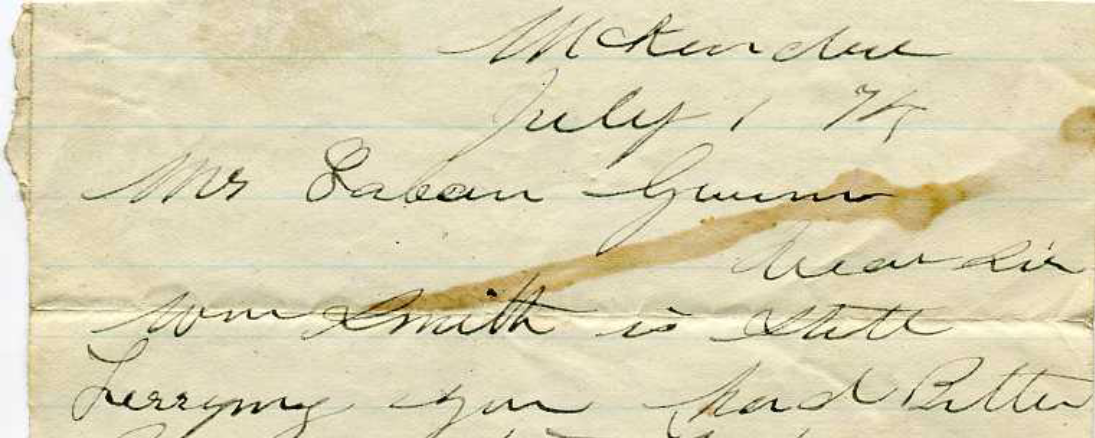 McKendree
July 1 74
Mr Laban Gwinn
Dear Sir
Wm Smith is Still
Ferrying you had Better